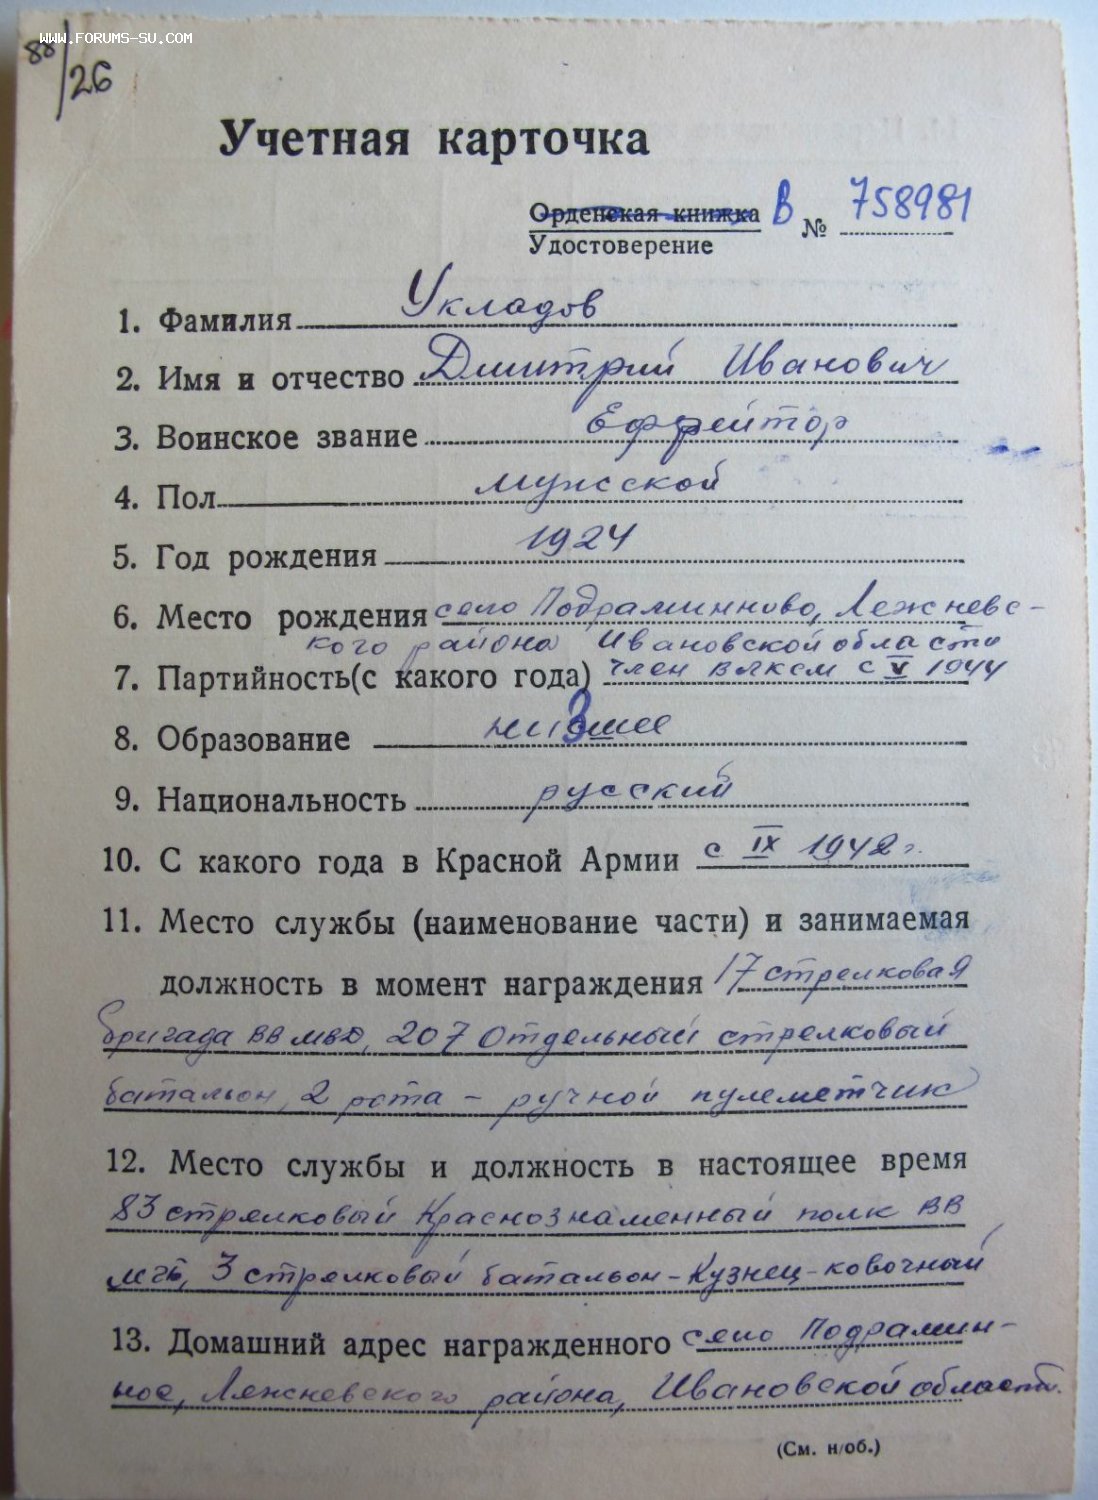 www.FORUMS-SU.COM
88/26
Учетная карточка
Орденская книжка В № 758981
Удостоверение
1. Фамилия Укладов
2. Имя и отчество Дмитрий Иванович
3. Воинское звание Ефрейтор
4. Пол мужской
5. Год рождения 1924
6. Место рождения село Подраминново, Лежневс-
кого района Ивановской области
7. Партийность(с какого года) член ВЛКСМ с V 1944
8. Образование низшее
9. Национальность русский
10. С какого года в Красной Армии с IX 1942 г.
11. Место службы (наименование части) и занимаемая
должность в момент награждения 17 стрелковая
бригада ВВ МВД, 207 Отдельный стрелковый
батальон, 2 рота - ручной пулеметчик
12. Место службы и должность в настоящее время
83 стрелковый Краснознаменный полк ВВ
МГБ, 3 стрелковый батальон - Кузнец-ковочный
13. Домашний адрес награжденного село Подрамин-
ное, Лежневского района, Ивановской области.
(См. н/об.)